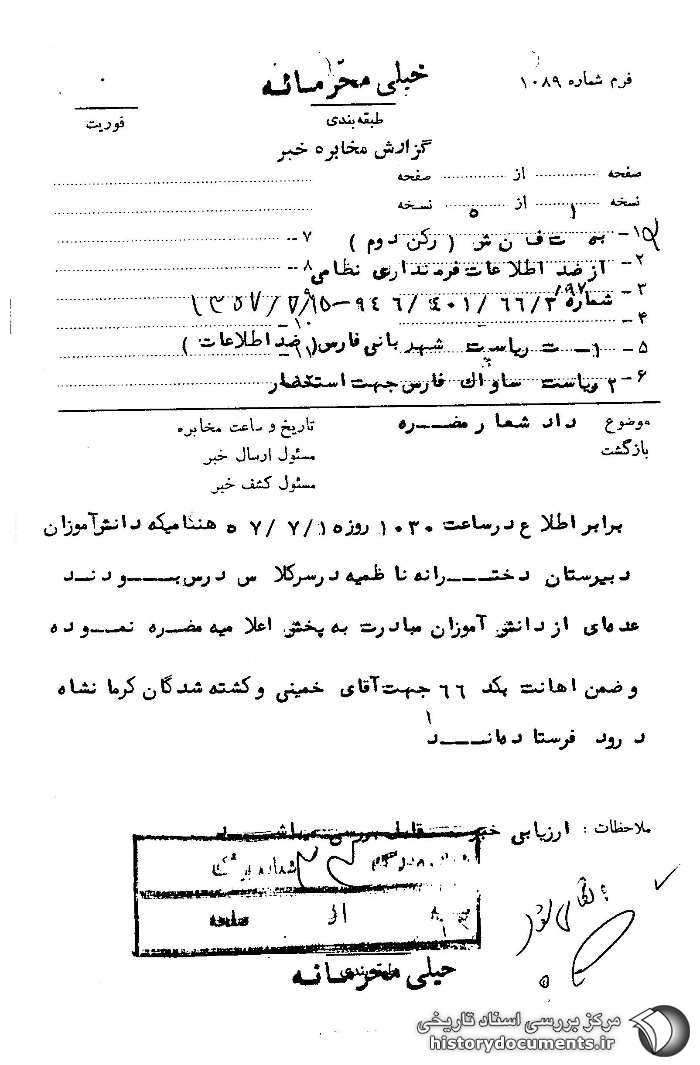 فرم شماره ۱۰۸۹
خیلی محرمانه
طبقه‌بندی
فوریت
گزارش مخابره خبر
صفحه از صفحه
نسخه ۱ از ۵ نسخه
۱- به ت ف ا ن ش ( رکن دوم ) ۷-
۲- از ضد اطلاعات فرمانداری نظامی ۸-
۳- شماره
۴- ۱۰-
۵- ۱- ت ریاست شهربانی فارس( ضد اطلاعات )
۶- ۲ ریاست ساواک فارس جهت استحضار
موضوع داد شعار مضره
بازگشت
تاریخ و ساعت مخابره
مسئول ارسال خبر
مسئول کشف خبر
برابر اطلاع درساعت ۱۰۳۰ روز ۱۵/ ۷/ ۵۷ هنگامیکه دانش‌آموزان
دبیرستان دخترانه ناظمیه درسرکلاس درس بودند
عده‌ای ازدانش آموزان مبادرت به پخش اعلامیه مضره نموده
و ضمن اهانت بکد ۶۶ جهت آقای خمینی و کشته شدگان کرمانشاه
درود فرستاده‌اند
ملاحظات : ارزیابی خبر قابل بررسی میباشد
شماره
صفحه از
خیلی محرمانه
طبقه‌بندی
مرکز بررسی اسناد تاریخی
historydocuments.ir